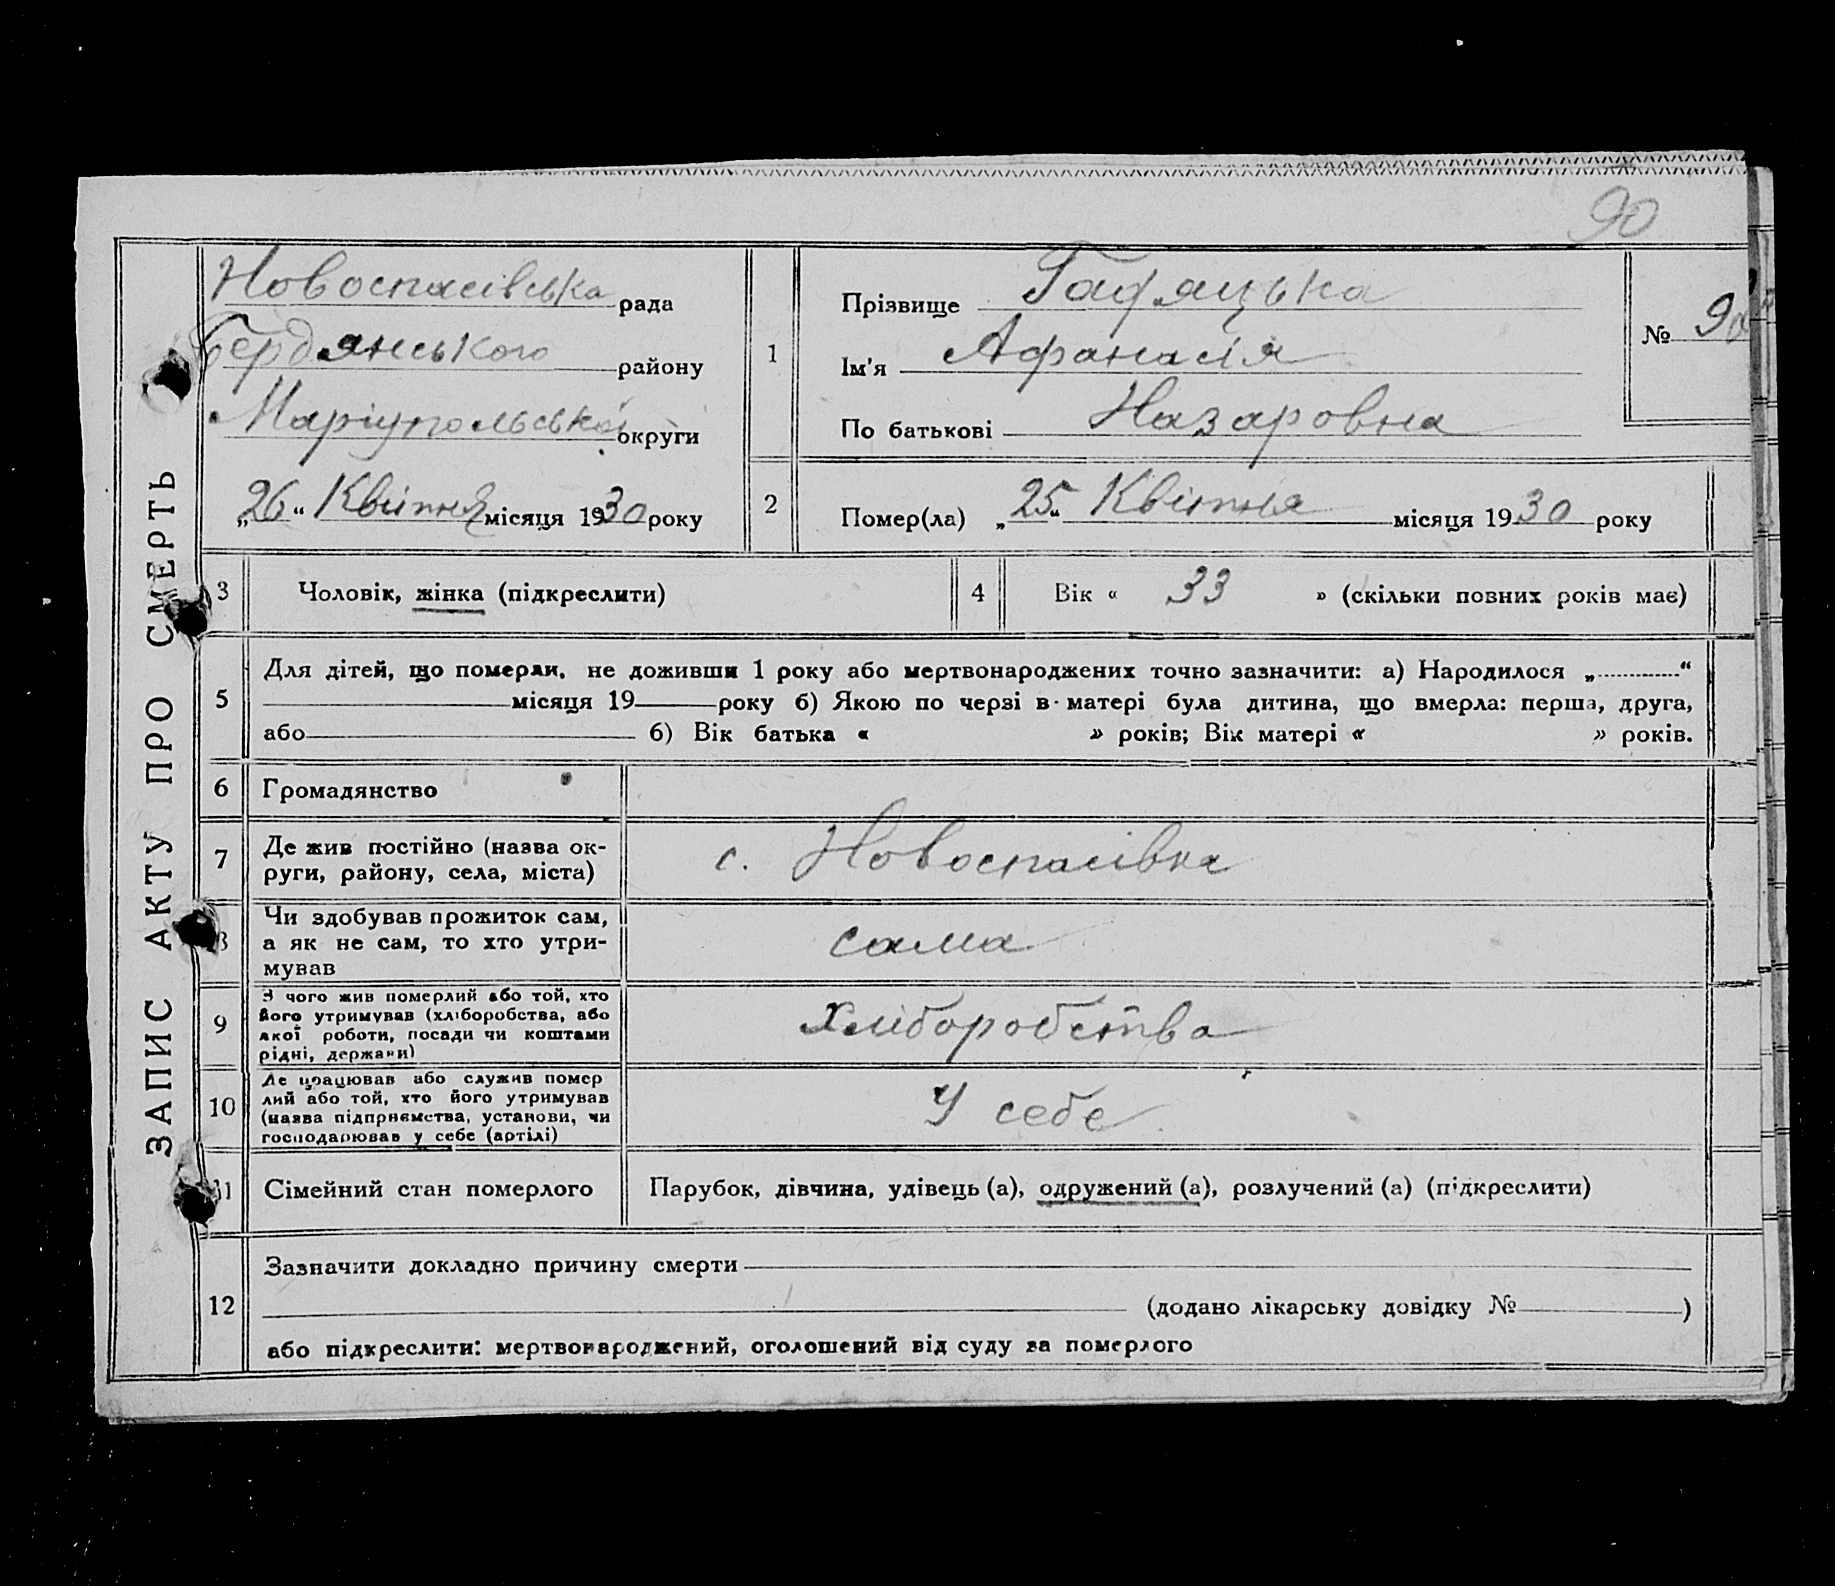 90
ЗАПИС АКТУ ПРО СМЕРТЬ
Новоспасівська рада
Бердянського району
Маріупольської округи
„26“ Квітня місяця 1930 року
1
Прізвище Гадяцька
Ім'я Афанасія
По батькові Назаровна
№ 90
2
Помер(ла) „25“ Квітня місяця 1930 року
3 Чоловік, жінка (підкреслити)
4 Вік « 33 » (скільки повних років має)
5
Для дітей, що померли, не доживши 1 року або мертвонароджених точно зазначити: а) Народилося „ “
місяця 19 року б) Якою по черзі в матері була дитина, що вмерла: перша, друга,
або б) Вік батька « » років; Вік матері « » років.
6 Громадянство
7
Де жив постійно (назва ок-
руги, району, села, міста)
с. Новоспасівка
8
Чи здобував прожиток сам,
а як не сам, то хто утри-
мував
сама
9
З чого жив померлий або той, хто
його утримував (хліборобства, або
якої роботи, посади чи коштами
рідні, держави)
Хліборобства
10
Де працював або служив помер
лий або той, хто його утримував
(назва підприємства, установи, чи
господарював у себе (артілі)
У себе
11 Сімейний стан померлого Парубок, дівчина, удівець (а), одружений (а), розлучений (а) (підкреслити)
12
Зазначити докладно причину смерти
(додано лікарську довідку № )
або підкреслити: мертвонароджений, оголошений від суду за померлого